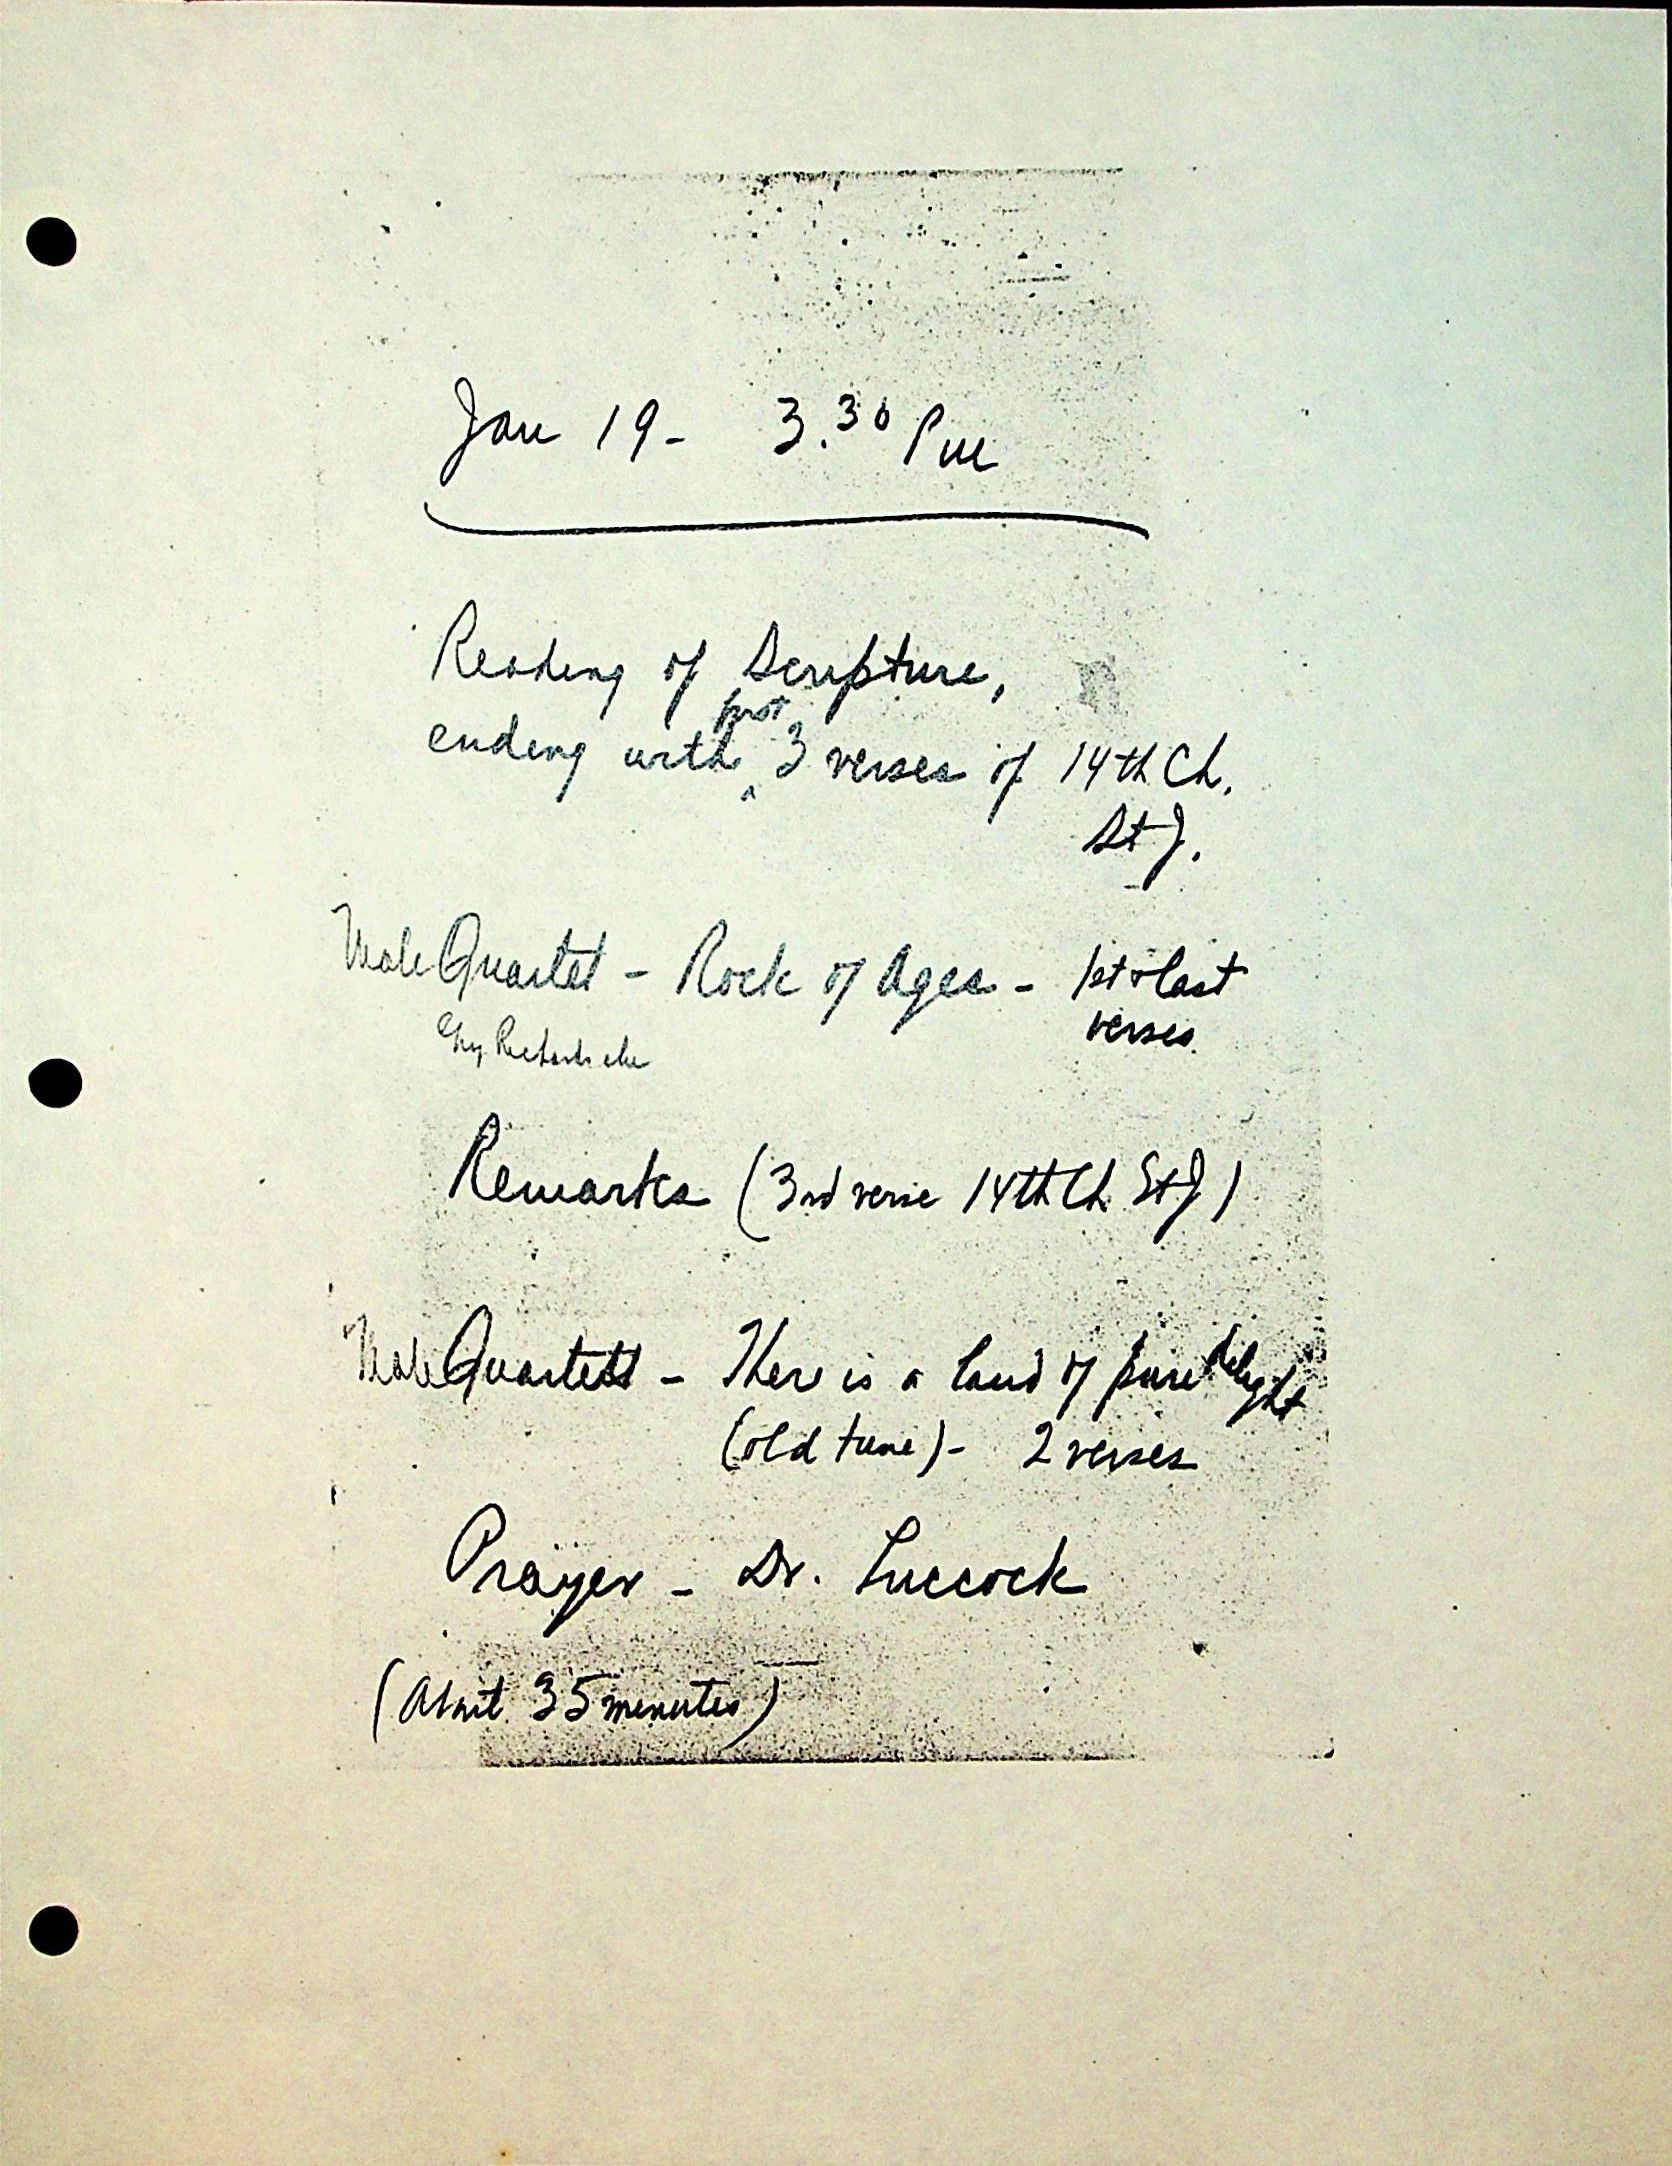 Jan 19 - 3.30 PM
Reading of Scripture,
first
ending with ^ 3 verses of 14th Ch.
St J.
Male Quartet - Rock of Ages - 1st & last
verses.
Remarks (3rd verse 14th Ch. St J)
Male Quartett - There is a land of pure delight
(old tune) - 2 verses
Prayer - Dr. Luccock
(About 35 minutes)